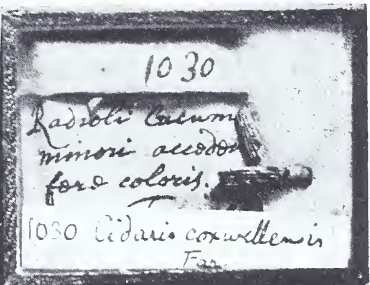 1030
Radioli Cucum
minori accedens
fere coloris.
1030 Cidaris coxwellensis
Far.